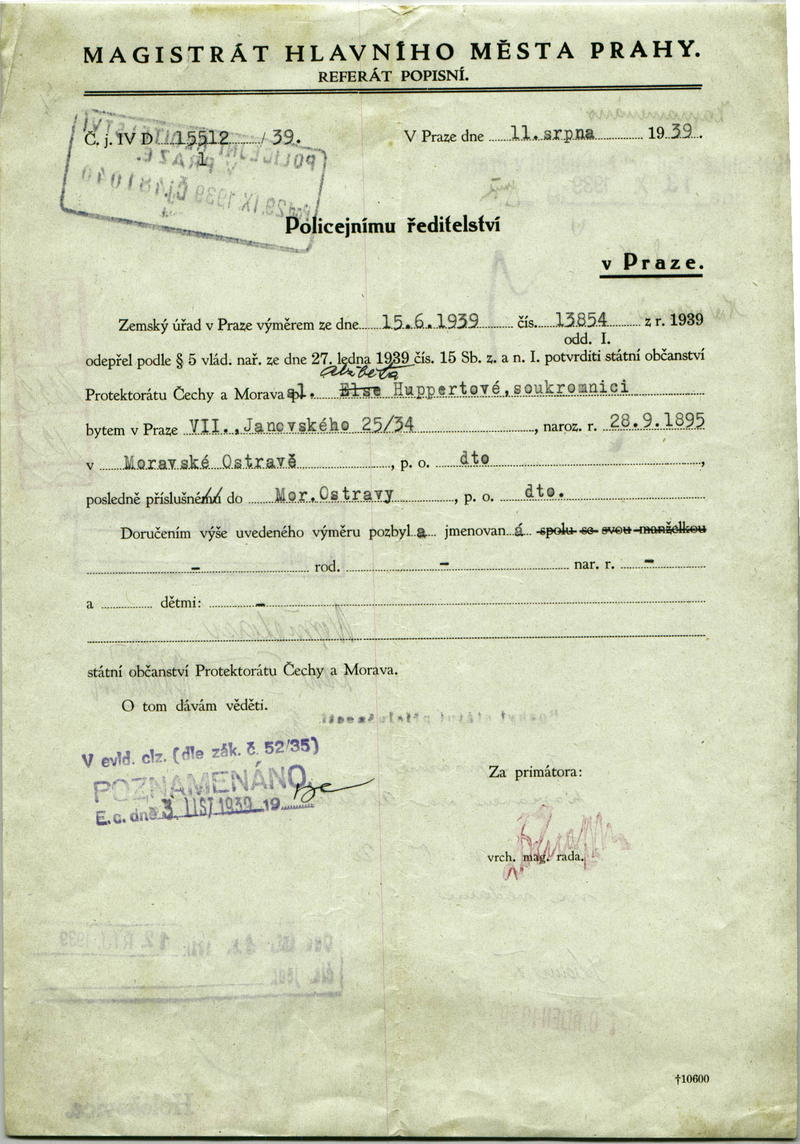 MAGISTRÁT HLAVNÍHO MĚSTA PRAHY.
REFERÁT POPISNÍ.
Č. j. IV D 15512 / 39.
1
V Praze dne 11. srpna 1939.
POLICEJNÍ
V PRAZE.
29. IX. 1939 Čj.
Policejnímu ředitelství
v Praze.
Zemský úřad v Praze výměrem ze dne 15.6.1939 čís. 13854 z r. 1939
odd. I.
odepřel podle § 5 vlád. nař. ze dne 27. ledna 1939 čís. 15 Sb. z. a n. I. potvrditi státní občanství
Alžběta
Protektorátu Čechy a Morava sl. Else Huppertové, soukromnici
bytem v Praze VII., Janovského 25/34, naroz. r. 28.9.1895
v Moravské Ostravě, p. o. dto,
posledně příslušné do Mor. Ostravy, p. o. dto.
Doručením výše uvedeného výměru pozbyl a jmenovan á spolu se svou manželkou
- rod. - nar. r. -
a dětmi: -
státní občanství Protektorátu Čechy a Morava.
O tom dávám věděti.
V evid. ciz. (dle zák. č. 52/35)
POZNAMENÁNO
E. c. dne 3. LIST 1939 19
Za primátora:
vrch. mag. rada.
†10600